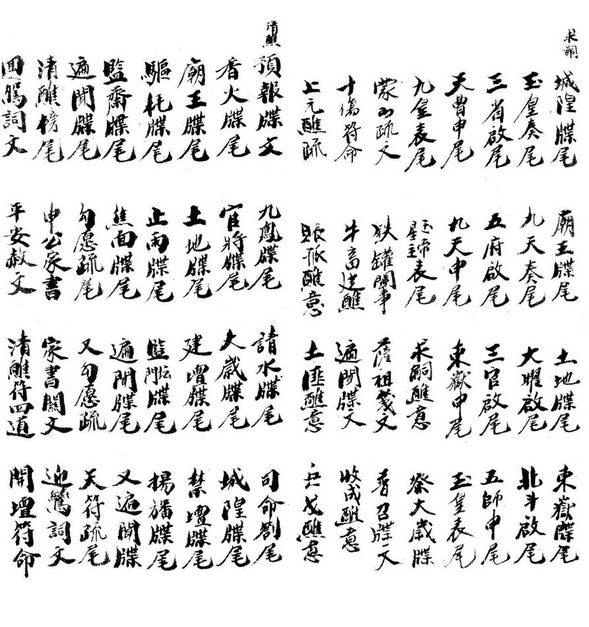 求嗣
城隍牒尾 廟王牒尾 土地牒尾 東嶽牒尾
玉皇奏尾 九天奏尾 大曜啟尾 北斗啟尾
三省啟尾 五府啟尾 三官啟尾 五師申尾
天曹申尾 九天申尾 東嶽申尾 玉皇表尾
九皇表尾 玉帝星主表尾 求嗣醮意 祭大歲牒
蒙山疏文 鉄罐開事 薩祖箋文 普召牒文
十傷符命 牛畜送醮 遍開牒文 收成醮意
上元醮疏 賑孤醮意 土匪醮意 兵戈醮意
清醮
預報牒文 九鳳牒尾 請水牒尾 司命劄尾
香火牒尾 官將牒尾 大歲牒尾 城隍牒尾
廟王牒尾 土地牒尾 建壇牒尾 禁壇牒尾
驅耗牒尾 止雨牒尾 監壇牒尾 揚旛牒尾
監齋牒尾 焦面牒尾 遍開牒尾 又遍開牒尾
遍開牒尾 勾愿疏尾 又勾愿疏 天符疏尾
清醮榜尾 申公家書 家書關文 迎鸞詞文
回鸞詞文 平安赦文 清醮符四道 開壇符命